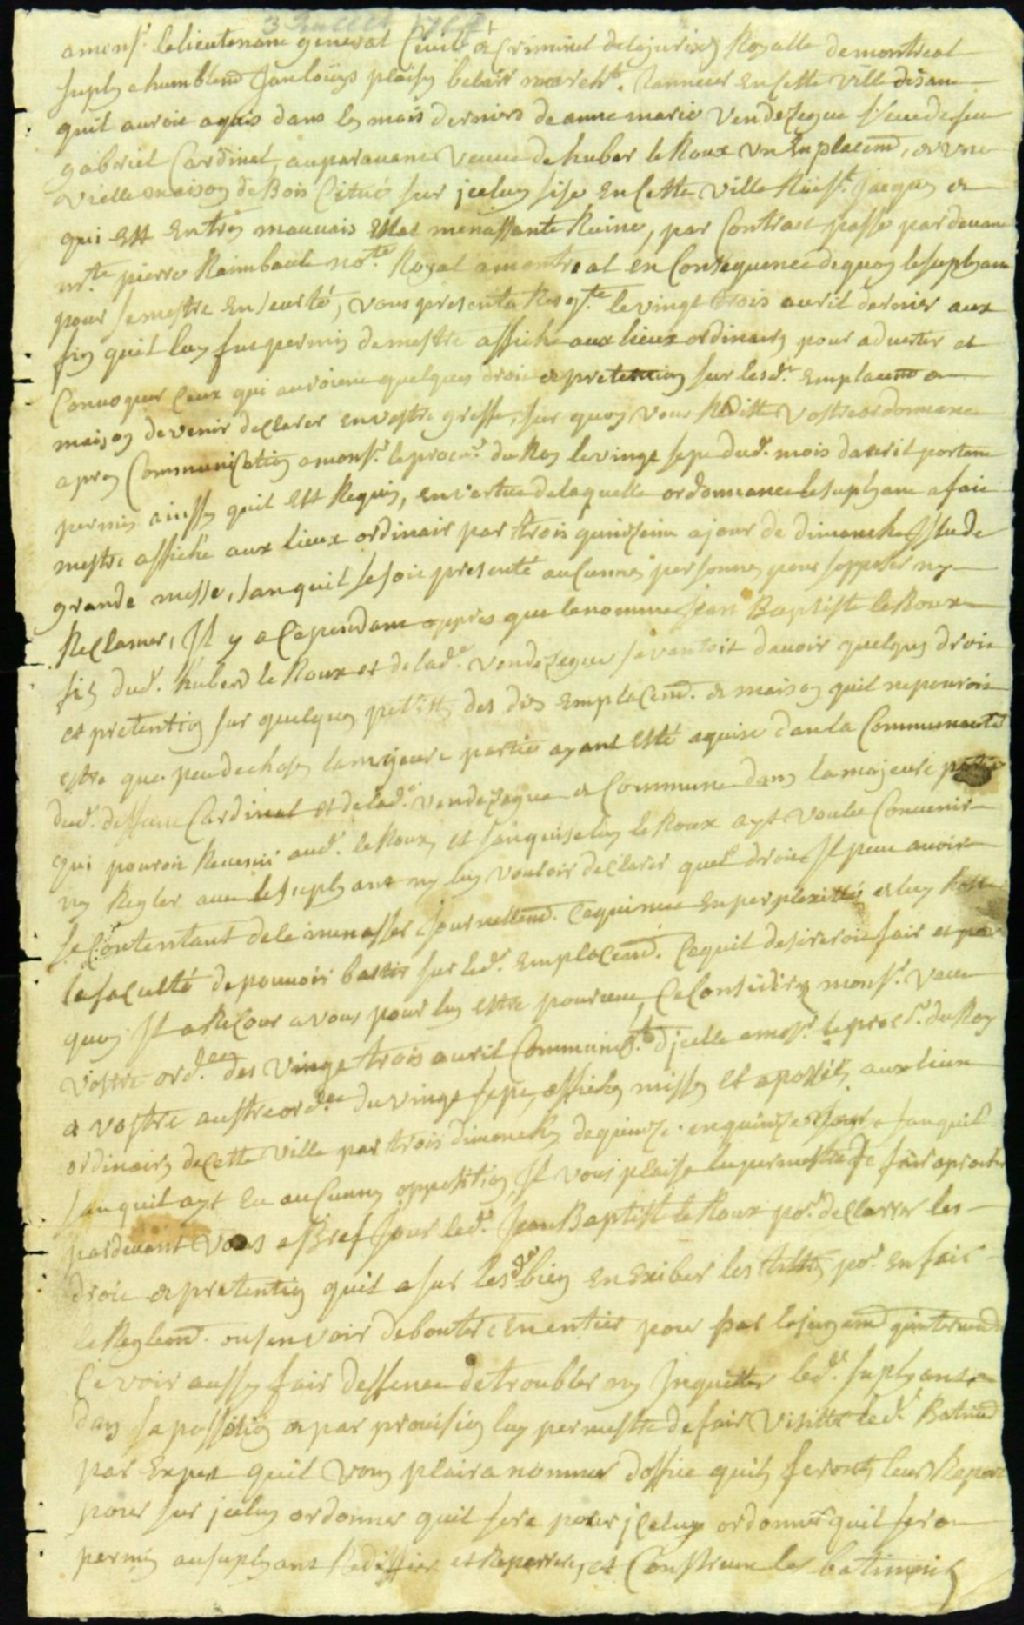 3 Juillet
a monsr. le lieutenant general Civil & Criminel de la jurisd. Royalle de montreal
suply humblemt Jan louys plaisy belair march. Tanneur En cette ville disant
quil auroit aquis dans le mois dernier de anne marie Vendezegue Veuve de feu
gabriel Cardinal, auparavant Veuve de huber le Roux Un Emplacemt, et une
vielle maison de Bois Cituée sur jceluy sise En cette ville Rüe St. jacques &
qui Est En tres mauvais Estat menassante Ruine, par Contract passé par devant
mre. pierre Raimbault nore. Royal a montreal en Consequence de quoy le suplyant
pour se mestre En seurté, vous presenta Reqte. le vingt trois avril dernier aux
fin quil luy fut permis de mestre affiche aux lieux ordinaires pour advertir et
Convoquer Ceux qui auroient quelques droit & pretention sur lesd. Emplacemt &
maison de venir declarer en vostre greffe, sur quoy vous Rendiste vostre ordonnance
apres Communication a monsr. le procr. du Roy le vingt sept dud. mois davril portant
permis ainssy quil Est Requis, en vertue de laquelle ordonnance le suplyant a fait
mestre affiché aux lieux ordinair par trois quinzaine a jour de dimanche Issue de
grande messe, san quil se soit presenté aucunnes personnes pour sopposer ny
Reclamer, Il y a Cependant appris que le nommé Jean Baptiste le Roux
fils dud. huberd le Roux et de lad. Vendezegue se vantoit davoir quelques droit
et pretention sur quelques petittes des dits Emplacemt. & maison quil ne pouroit
estre que peu de chose, la majeure partie ayant Esté aquise dans la Communauté
dud. deffunt Cardinal et de lad. Vendezegue & Commune dans la majeure partie
qui pouroit Revenir aud. le Roux, et sans que iceluy le Roux ayt voulu Convenir
ny Regler avec le suplyant ny luy vouloir declarer quel droit Il peut avoir
se Contentant de le menasser journellemt. Ce qui met En perplexitté et luy hoste
la faculté de pouvoir bastir sur led. Emplacemt. Ce quil desireroit fair et pour
quoy Il a Recour a vous pour luy estre pourvue, Ce Consideré monsr. Veu
vostre ordce. des vingt trois avril Communicé. djcelle a monsr. le procr. du Roy
& vostre autre ordce. du vingt sept, affiches misses et aposées aux lieux
ordinaires de cette ville par trois dimanches de quinze en quinze jours sanquil
sanquil ayt Eu aucunnes opposition Il vous plaise luy permestre de fair aprocher
pardevant vous a Bref Jour led. Jean Baptiste le Roux por. declarrer les
droit & pretention quil a sur lesd. bien en Exiber les tittres por. En fair
le Reglemt. ou sen voir deboutér En entier pour par le jugemt qui interviendra
Ce voir aussy fair deffence de troubler ny Inquietter led. suplyant
dans sa possession & par provision luy permestre de fair visitté led. Batimt
par Expert quil vous plaira nommer doffice quils feront leur Raport
pour sur jceluy ordonner quil sera pour jceluy ordonner quil sera
permis au suplyant Rediffier et Reparrer, et Construire les batiments